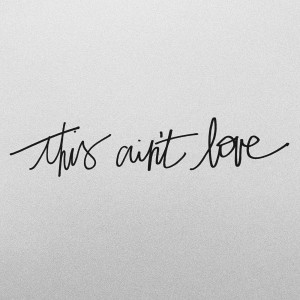 this ain't love